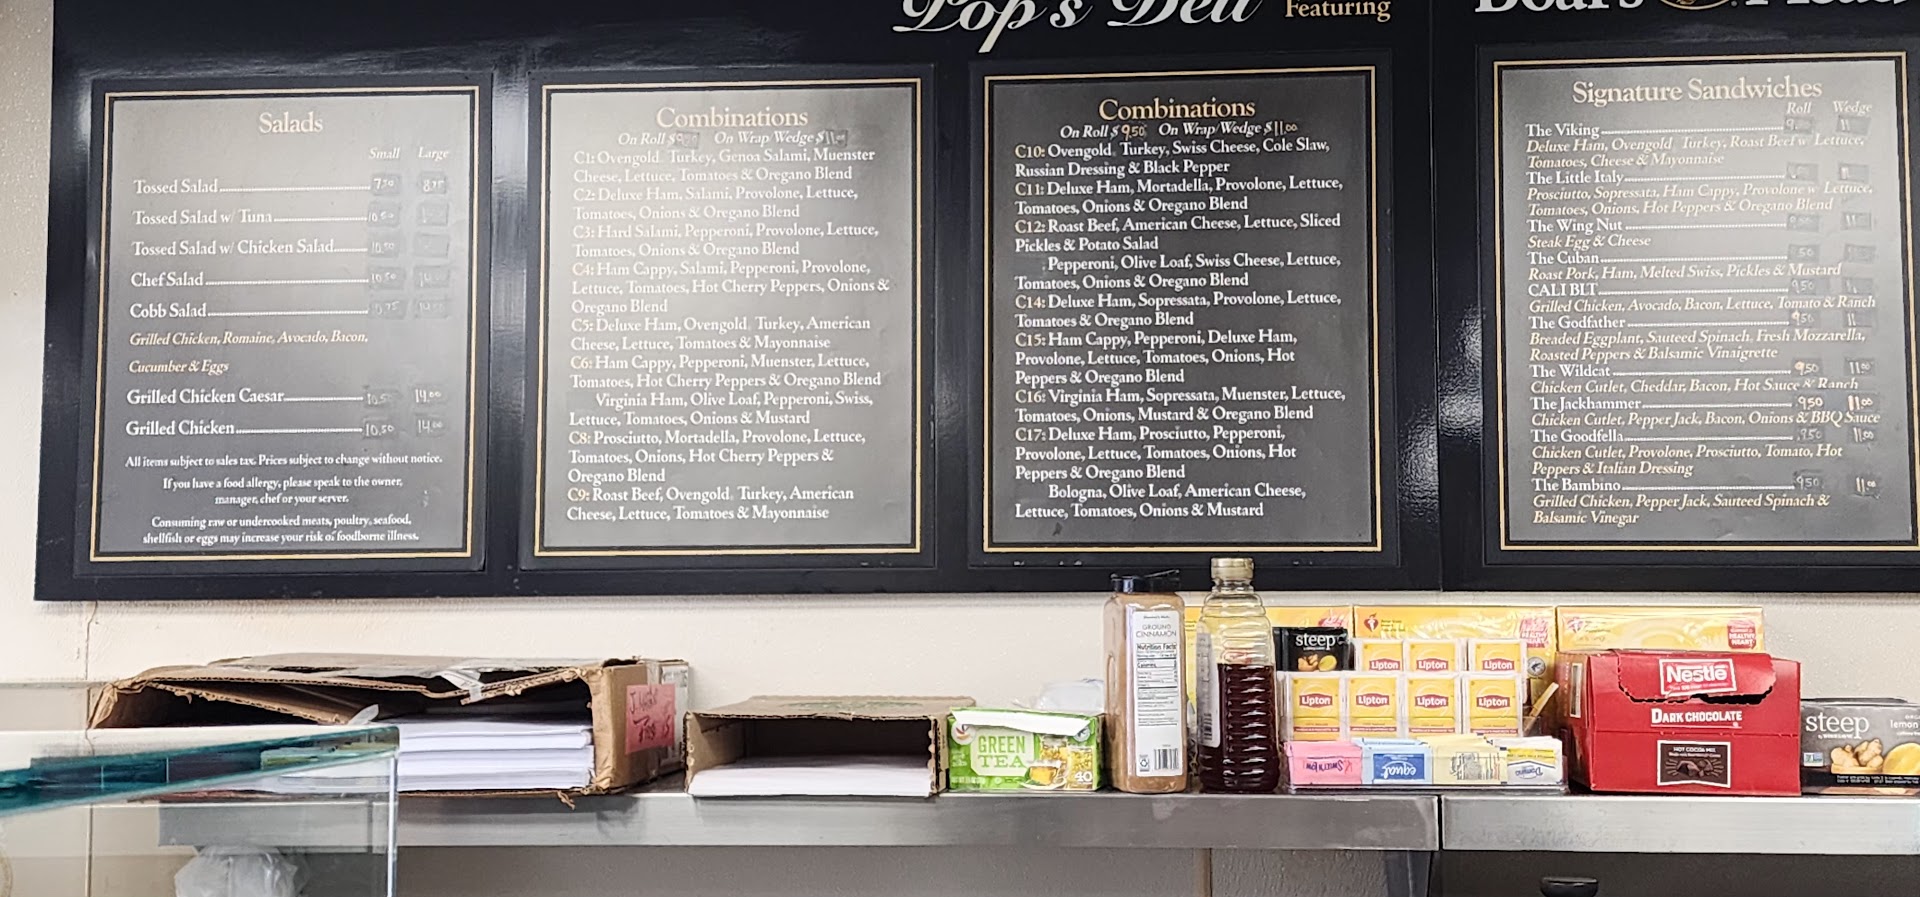 Pop's Deli Featuring
Salads
Small Large
Tossed Salad 7.50
Tossed Salad w/ Tuna 10.50
Tossed Salad w/ Chicken Salad 10.50
Chef Salad 10.50
Cobb Salad
Grilled Chicken, Romaine, Avocado, Bacon,
Cucumber & Eggs
Grilled Chicken Caesar 10.50 14.00
Grilled Chicken 10.50 14.00
All items subject to sales tax. Prices subject to change without notice.
If you have a food allergy, please speak to the owner,
manager, chef or your server.
Consuming raw or undercooked meats, poultry, seafood,
shellfish or eggs may increase your risk of foodborne illness.
Combinations
On Roll $9.50 On Wrap Wedge $11.00
C1: Ovengold Turkey, Genoa Salami, Muenster
Cheese, Lettuce, Tomatoes & Oregano Blend
C2: Deluxe Ham, Salami, Provolone, Lettuce,
Tomatoes, Onions & Oregano Blend
C3: Hard Salami, Pepperoni, Provolone, Lettuce,
Tomatoes, Onions & Oregano Blend
C4: Ham Cappy, Salami, Pepperoni, Provolone,
Lettuce, Tomatoes, Hot Cherry Peppers, Onions &
Oregano Blend
C5: Deluxe Ham, Ovengold Turkey, American
Cheese, Lettuce, Tomatoes & Mayonnaise
C6: Ham Cappy, Pepperoni, Muenster, Lettuce,
Tomatoes, Hot Cherry Peppers & Oregano Blend
Virginia Ham, Olive Loaf, Pepperoni, Swiss,
Lettuce, Tomatoes, Onions & Mustard
C8: Prosciutto, Mortadella, Provolone, Lettuce,
Tomatoes, Onions, Hot Cherry Peppers &
Oregano Blend
C9: Roast Beef, Ovengold Turkey, American
Cheese, Lettuce, Tomatoes & Mayonnaise
Combinations
On Roll $9.50 On Wrap/Wedge $11.00
C10: Ovengold Turkey, Swiss Cheese, Cole Slaw,
Russian Dressing & Black Pepper
C11: Deluxe Ham, Mortadella, Provolone, Lettuce,
Tomatoes, Onions & Oregano Blend
C12: Roast Beef, American Cheese, Lettuce, Sliced
Pickles & Potato Salad
Pepperoni, Olive Loaf, Swiss Cheese, Lettuce,
Tomatoes, Onions & Oregano Blend
C14: Deluxe Ham, Sopressata, Provolone, Lettuce,
Tomatoes & Oregano Blend
C15: Ham Cappy, Pepperoni, Deluxe Ham,
Provolone, Lettuce, Tomatoes, Onions, Hot
Peppers & Oregano Blend
C16: Virginia Ham, Sopressata, Muenster, Lettuce,
Tomatoes, Onions, Mustard & Oregano Blend
C17: Deluxe Ham, Prosciutto, Pepperoni,
Provolone, Lettuce, Tomatoes, Onions, Hot
Peppers & Oregano Blend
Bologna, Olive Loaf, American Cheese,
Lettuce, Tomatoes, Onions & Mustard
Signature Sandwiches
Roll Wedge
The Viking
Deluxe Ham, Ovengold Turkey, Roast Beef w Lettuce,
Tomatoes, Cheese & Mayonnaise
The Little Italy
Prosciutto, Sopressata, Ham Cappy, Provolone w Lettuce,
Tomatoes, Onions, Hot Peppers & Oregano Blend
The Wing Nut
Steak Egg & Cheese
The Cuban
Roast Pork, Ham, Melted Swiss, Pickles & Mustard
CALI BLT 9.50
Grilled Chicken, Avocado, Bacon, Lettuce, Tomato & Ranch
The Godfather 9.50
Breaded Eggplant, Sauteed Spinach, Fresh Mozzarella,
Roasted Peppers & Balsamic Vinaigrette
The Wildcat 9.50 11.00
Chicken Cutlet, Cheddar, Bacon, Hot Sauce & Ranch
The Jackhammer 9.50 11.00
Chicken Cutlet, Pepper Jack, Bacon, Onions & BBQ Sauce
The Goodfella 9.50 11.00
Chicken Cutlet, Provolone, Prosciutto, Tomato, Hot
Peppers & Italian Dressing
The Bambino 9.50 11.00
Grilled Chicken, Pepper Jack, Sauteed Spinach &
Balsamic Vinegar
GROUND
CINNAMON
Nutrition Facts
steep
Lipton Lipton Lipton
Lipton Lipton Lipton Lipton
GREEN
TEA
40
Sweet'N Low
equal
Domino
Nestlé
DARK CHOCOLATE
HOT COCOA MIX
steep
lemon